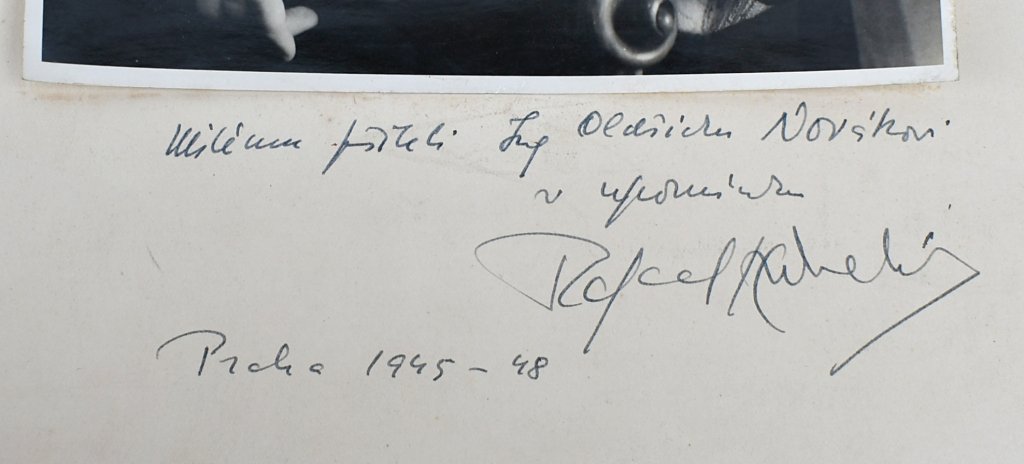 Milému příteli Ing Oldřichu Novákovi
v upomínku
Rafael Kubelík
Praha 1945 – 48